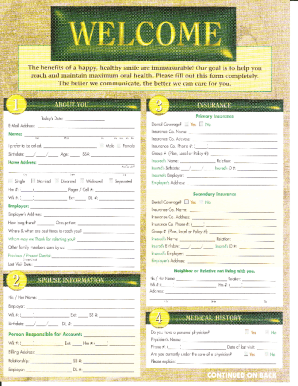 WELCOME
The benefits of a happy, healthy smile are immeasurable! Our goal is to help you
reach and maintain maximum oral health. Please fill out this form completely.
The better we communicate, the better we can care for you.
1
ABOUT YOU
Today's Date:
E-Mail Address:
Name:
I prefer to be called:
Male
Female
Birthdate:
Age:
SS#:
Home Address:
Single
Married
Divorced
Widowed
Separated
Hm #:
Pager / Cell #:
Wk #:
Ext:
DL #:
Employer:
Employer's Address:
How long there?
Occupation:
Where & when are best times to reach you?
Whom may we Thank for referring you?
Other family members seen by us:
Previous / Present Dentist:
Last Visit Date:
2
SPOUSE INFORMATION
His / Her Name:
Employer:
Wk #:
Ext:
SS #:
Birthdate:
DL #:
Person Responsible for Accounts
Wk #:
Ext:
Hm #:
Billing Address:
Relationship:
SS #:
Employer:
DL #:
3
INSURANCE
Primary Insurance
Dental Coverage?
Yes
No
Insurance Co. Name:
Insurance Co. Address:
Insurance Co. Phone #:
Group # (Plan, Local or Policy #):
Insured's Name:
Relation:
Insured's Birthdate:
Insured's ID #:
Insured's Employer:
Employer's Address:
Secondary Insurance
Dental Coverage?
Yes
No
Insurance Co. Name:
Insurance Co. Address:
Insurance Co. Phone #:
Group # (Plan, Local or Policy #):
Insured's Name:
Relation:
Insured's Birthdate:
Insured's ID #:
Insured's Employer:
Employer's Address:
Neighbor or Relative not living with you.
His / Her Name:
Relation:
Wk #:
Hm #:
Address:
4
MEDICAL HISTORY
Do you have a personal physician?
Yes
No
Physician's Name:
Phone #:
Date of last visit:
Are you currently under the care of a physician?
Yes
No
Please explain:
CONTINUED ON BACK